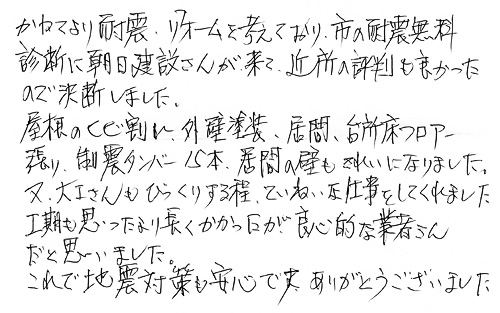 かねてより耐震、リフォームを考えており、市の耐震無料
診断に朝日建設さんが来て、近所の評判も良かった
ので決断しました。
屋根のくむ割れ、外壁塗装、居間、台所床フロアー
張り、制震ダンパー15本、居間の壁もきれいになりました。
又、大工さんもびっくりする程、ていねいな仕事をしてくれました
工期も思ったより長くかかったが良心的な業者さん
だと思いました。
これで地震対策も安心です。ありがとうございました